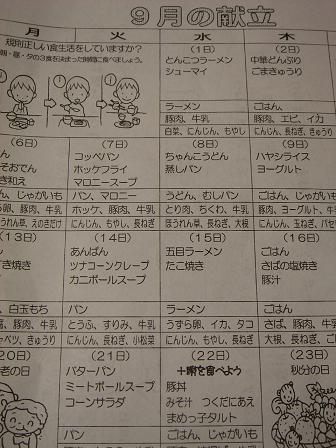 ９月の献立
月 火 水 木
規則正しい食生活をしていますか？
朝・昼・夕の３食を決まった時間に食べましょう。
(1日)
とんこつラーメン
シューマイ
ラーメン
豚肉、牛乳
白菜、にんじん、もやし
(2日)
中華どんぶり
ごまきゅうり
ごはん、
豚肉、エビ、イカ
にんじん、長ねぎ、きゅうり
(6日)
(7日)
コッペパン
ホッケフライ
マロニースープ
パン、マロニー
ホッケ、豚肉、牛乳
にんじん、もやし、長ねぎ
(8日)
ちゃんこうどん
蒸しパン
うどん、むしパン
とり肉、ちくわ、牛乳
ほうれん草、長ねぎ、大根
(9日)
ハヤシライス
ヨーグルト
ごはん、じゃがいも
豚肉、ヨーグルト、牛乳
にんじん、玉ねぎ、
(13日)
き焼き
、白玉もち
、豚肉、牛乳
(14日)
あんぱん
ツナコーンクレープ
カニボールスープ
パン
とうふ、すりみ、牛乳
にんじん、長ねぎ、小松菜
(15日)
五目ラーメン
たこ焼き
ラーメン
うずら卵、イカ、タコ
にんじん、長ねぎ、もやし
(16日)
ごはん
さばの塩焼き
豚汁
ごはん
さば、豚肉、
大根、にんじん、長ねぎ、
20日)
老の日
(21日)
バターパン
ミートボールスープ
コーンサラダ
パン
(22日)
豚丼
みそ汁 つくだにあえ
まめっ子タルト
ごはん、じゃがいも
(23日)
秋分の日